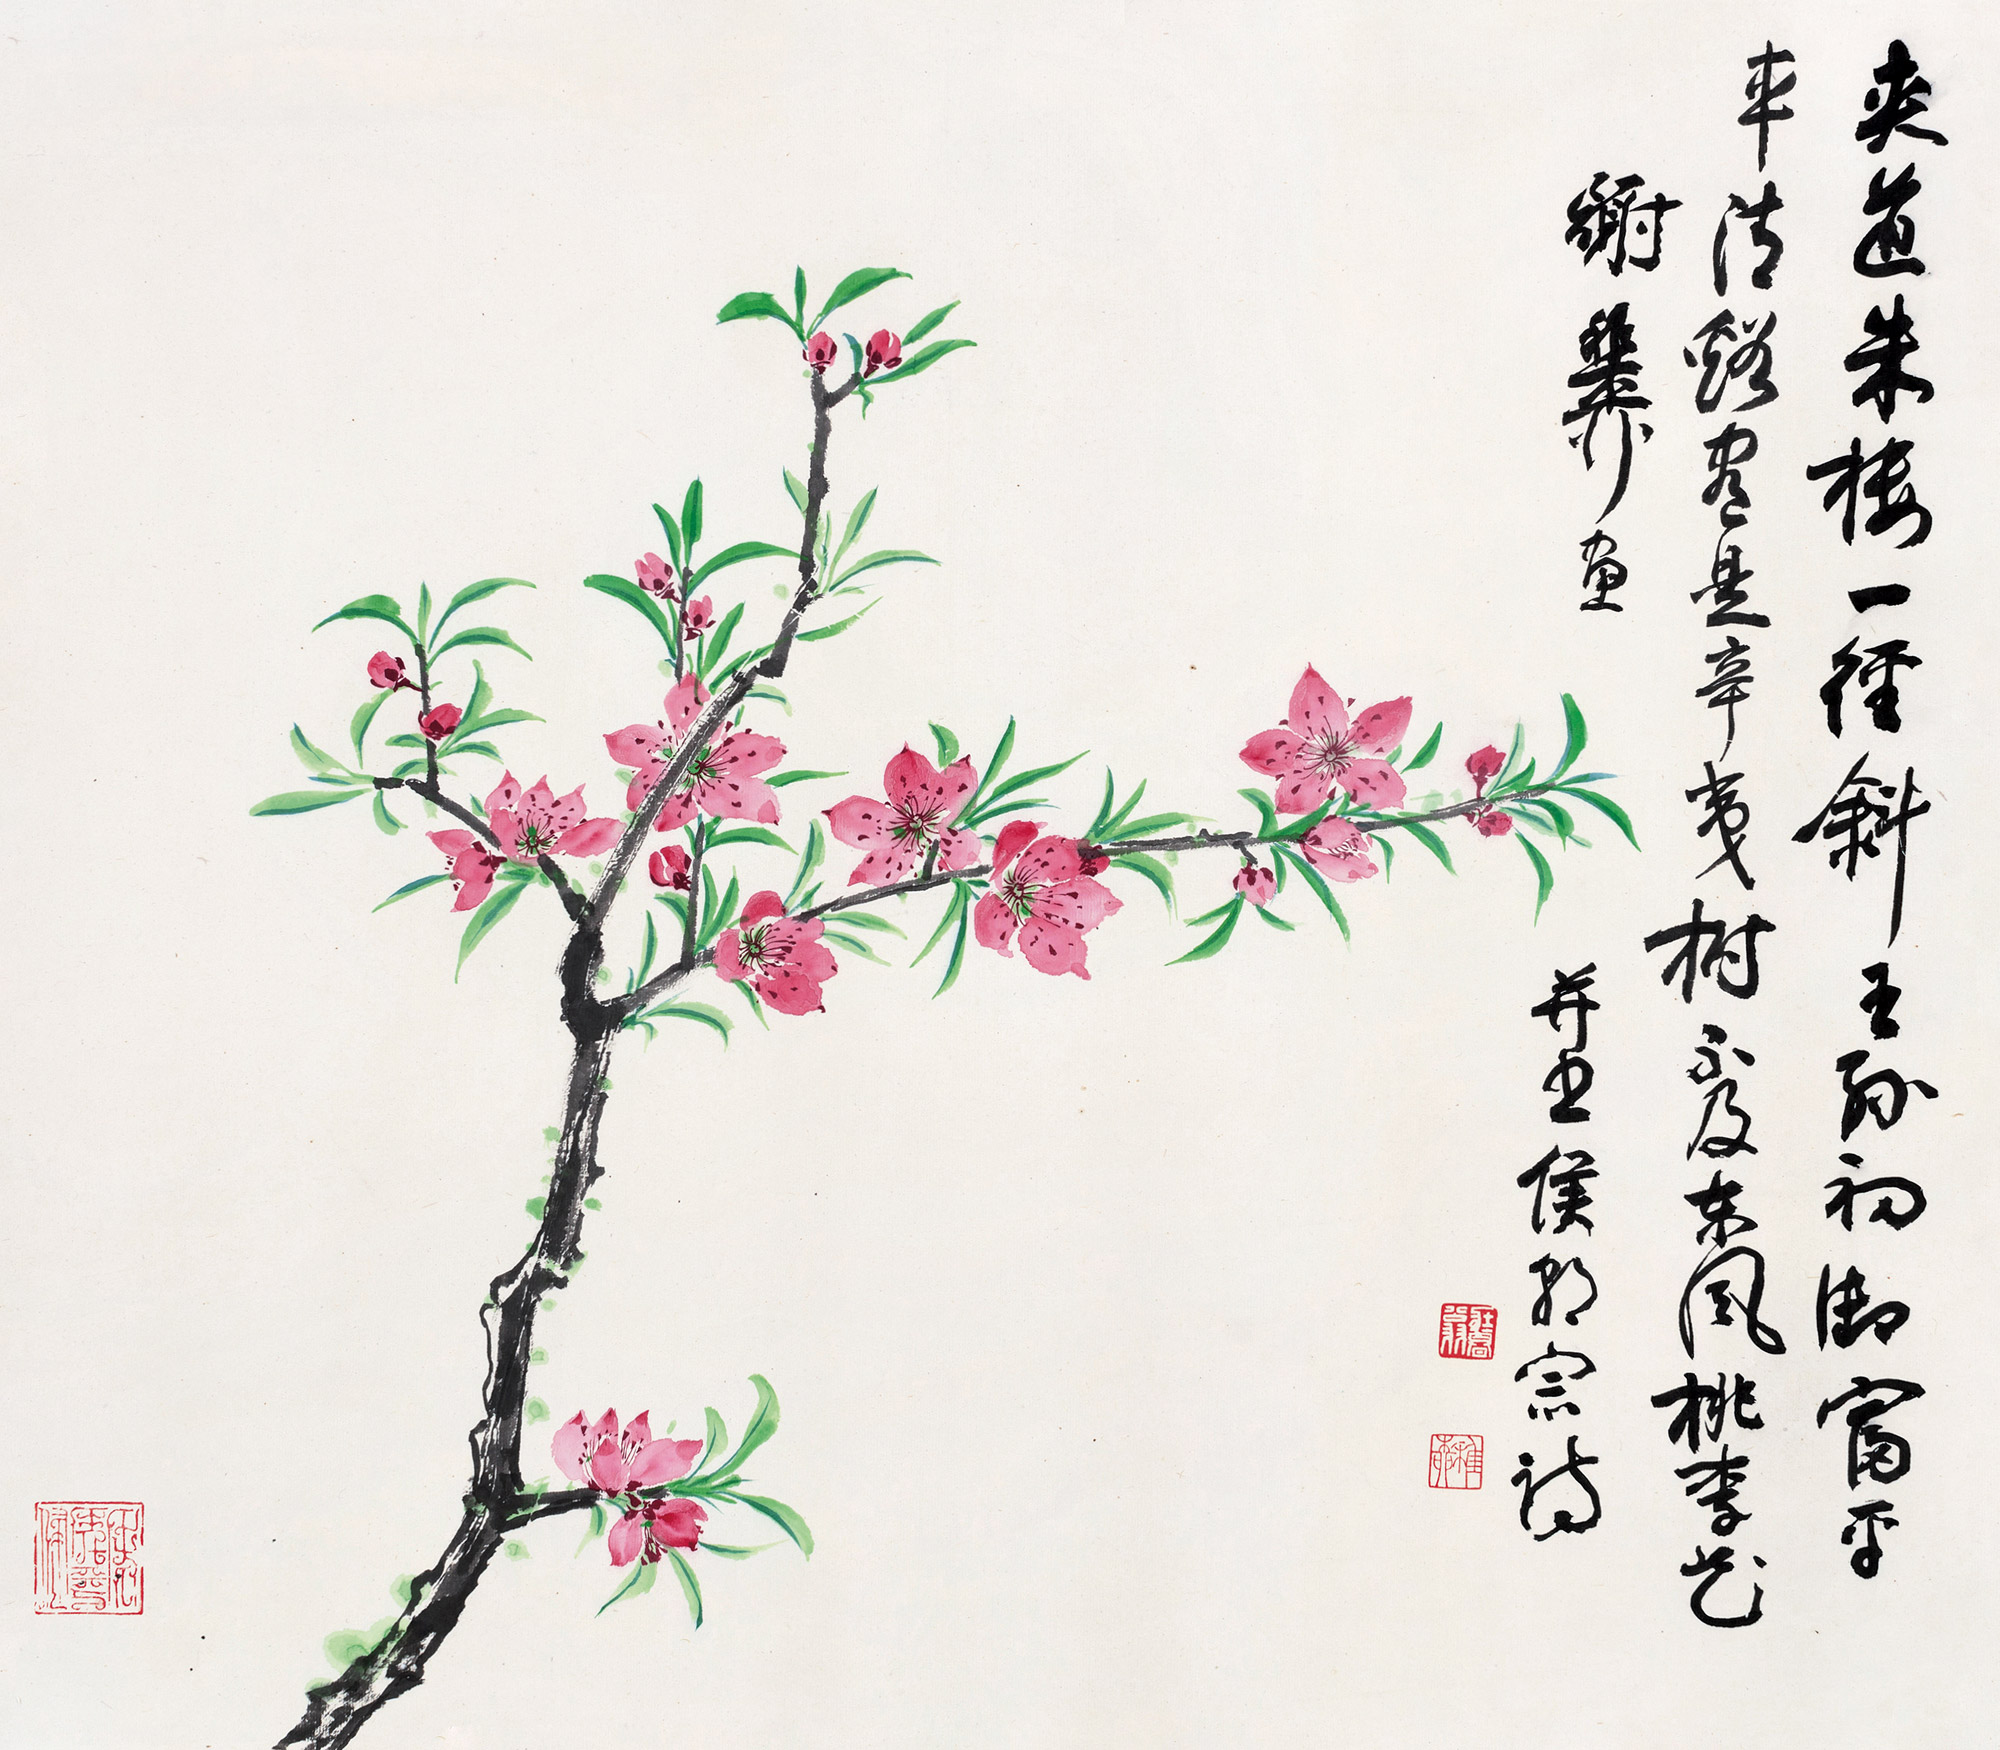 夾道朱樓一徑斜王孫初御富平
車清谿盡是辛夷樹不及东風桃李花
謝稚柳画
并書侯朝宗詩
壯暮翁
稚柳